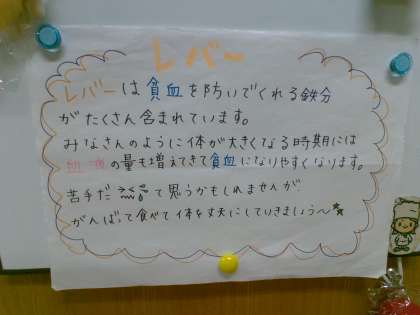 レバー
レバーは貧血を防いでくれる鉄分
がたくさん含まれています。
みなさんのように体が大きくなる時期には
血液の量も増えてきて貧血になりやすくなります。
苦手だ〜って思うかもしれませんが、
がんばって食べて体を丈夫にしていきましょう〜★